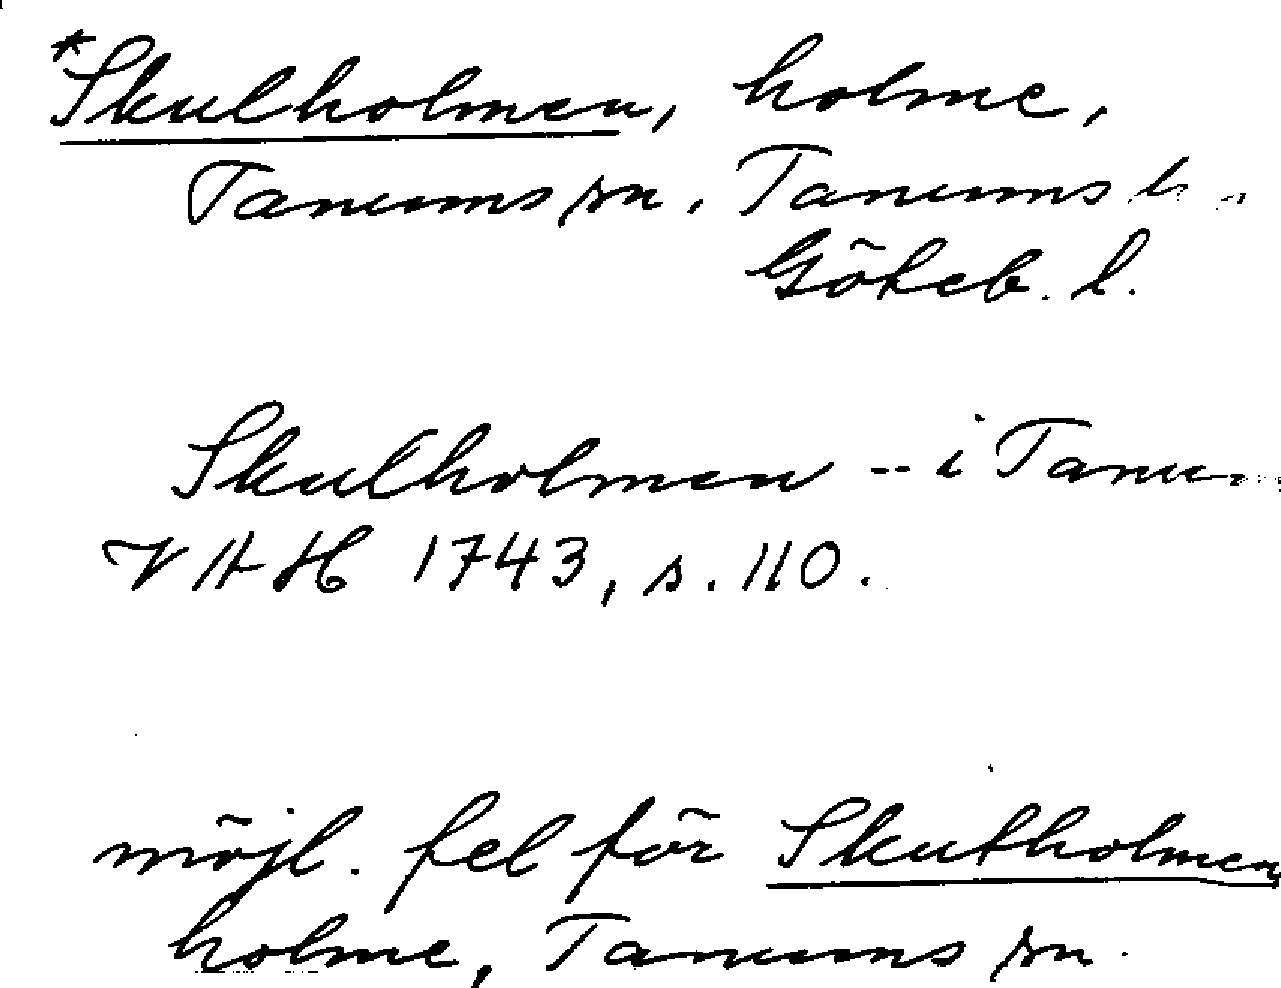 *Skulholmen, holme,
Tanums sn. Tanums h.
Göteb. l.
Skulholmen -- i Tanum
VHH 1743, s. 110.
möjl. fel för Skutholmen,
holme, Tanums sn.